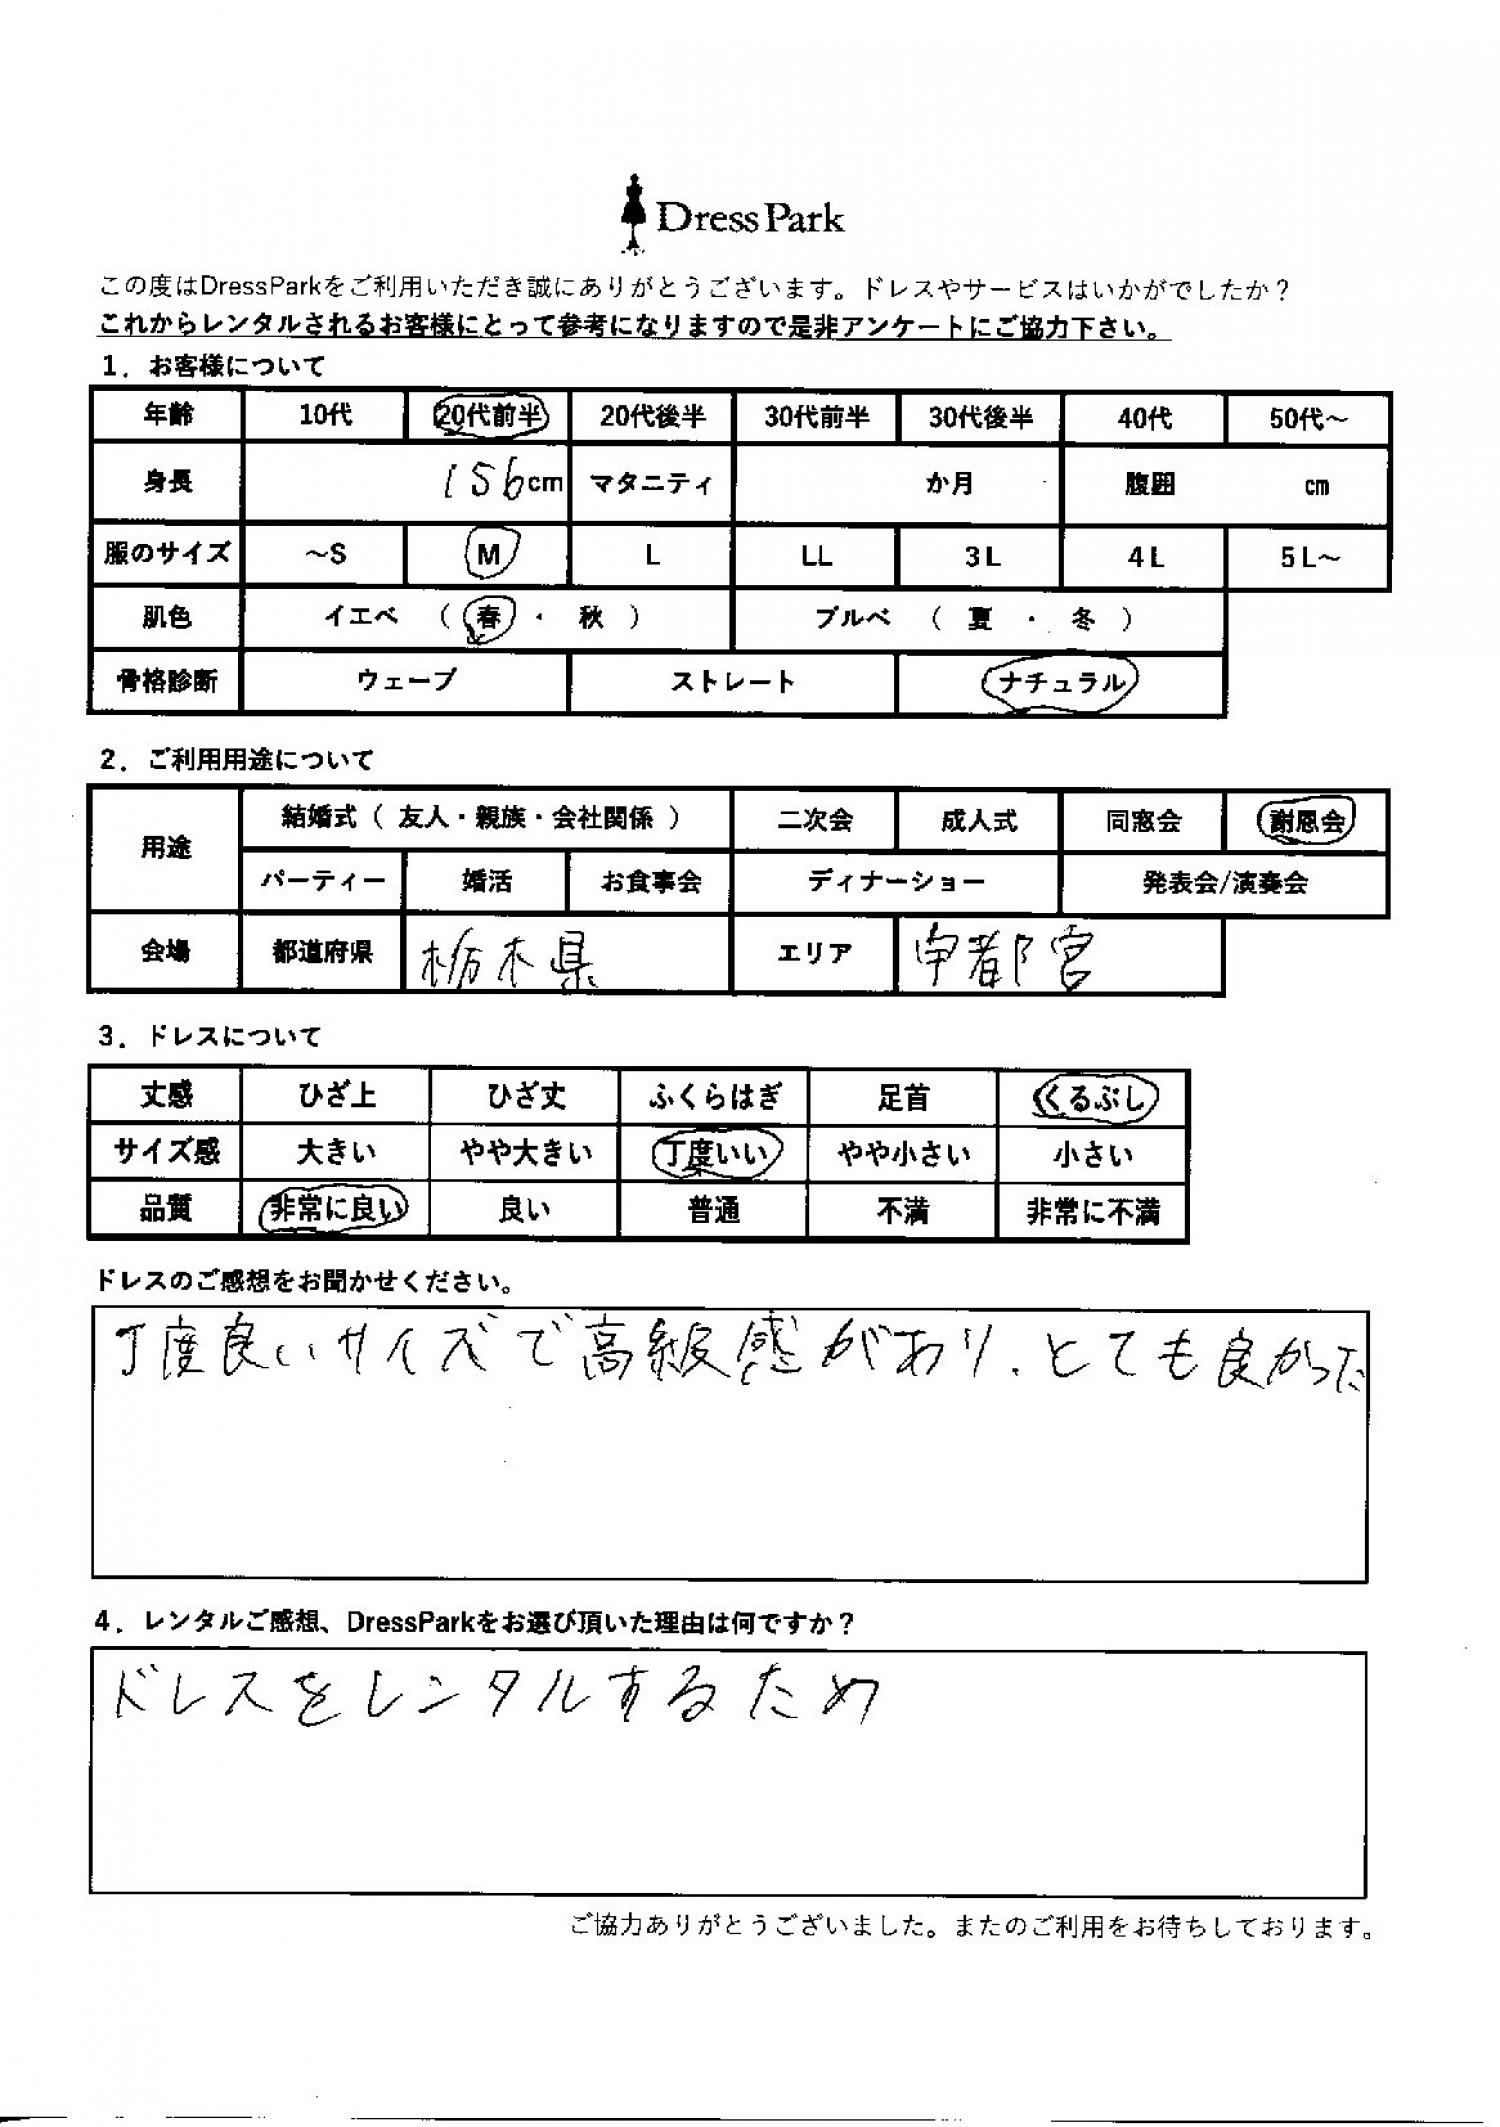 Dress Park
この度はDressParkをご利用いただき誠にありがとうございます。ドレスやサービスはいかがでしたか？
これからレンタルされるお客様にとって参考になりますので是非アンケートにご協力下さい。
1．お客様について
年齢 10代 20代前半 20代後半 30代前半 30代後半 40代 50代～
身長 156cm マタニティ か月 腹囲 cm
服のサイズ ～S M L LL 3L 4L 5L～
肌色 イエベ （ 春 ・ 秋 ） ブルベ （ 夏 ・ 冬 ）
骨格診断 ウェーブ ストレート ナチュラル
2．ご利用用途について
用途 結婚式（ 友人・親族・会社関係 ） 二次会 成人式 同窓会 謝恩会
パーティー 婚活 お食事会 ディナーショー 発表会/演奏会
会場 都道府県 栃木県 エリア 宇都宮
3．ドレスについて
丈感 ひざ上 ひざ丈 ふくらはぎ 足首 くるぶし
サイズ感 大きい やや大きい 丁度いい やや小さい 小さい
品質 非常に良い 良い 普通 不満 非常に不満
ドレスのご感想をお聞かせください。
丁度良いサイズで高級感があり、とても良かった
4．レンタルご感想、DressParkをお選び頂いた理由は何ですか？
ドレスをレンタルするため
ご協力ありがとうございました。またのご利用をお待ちしております。